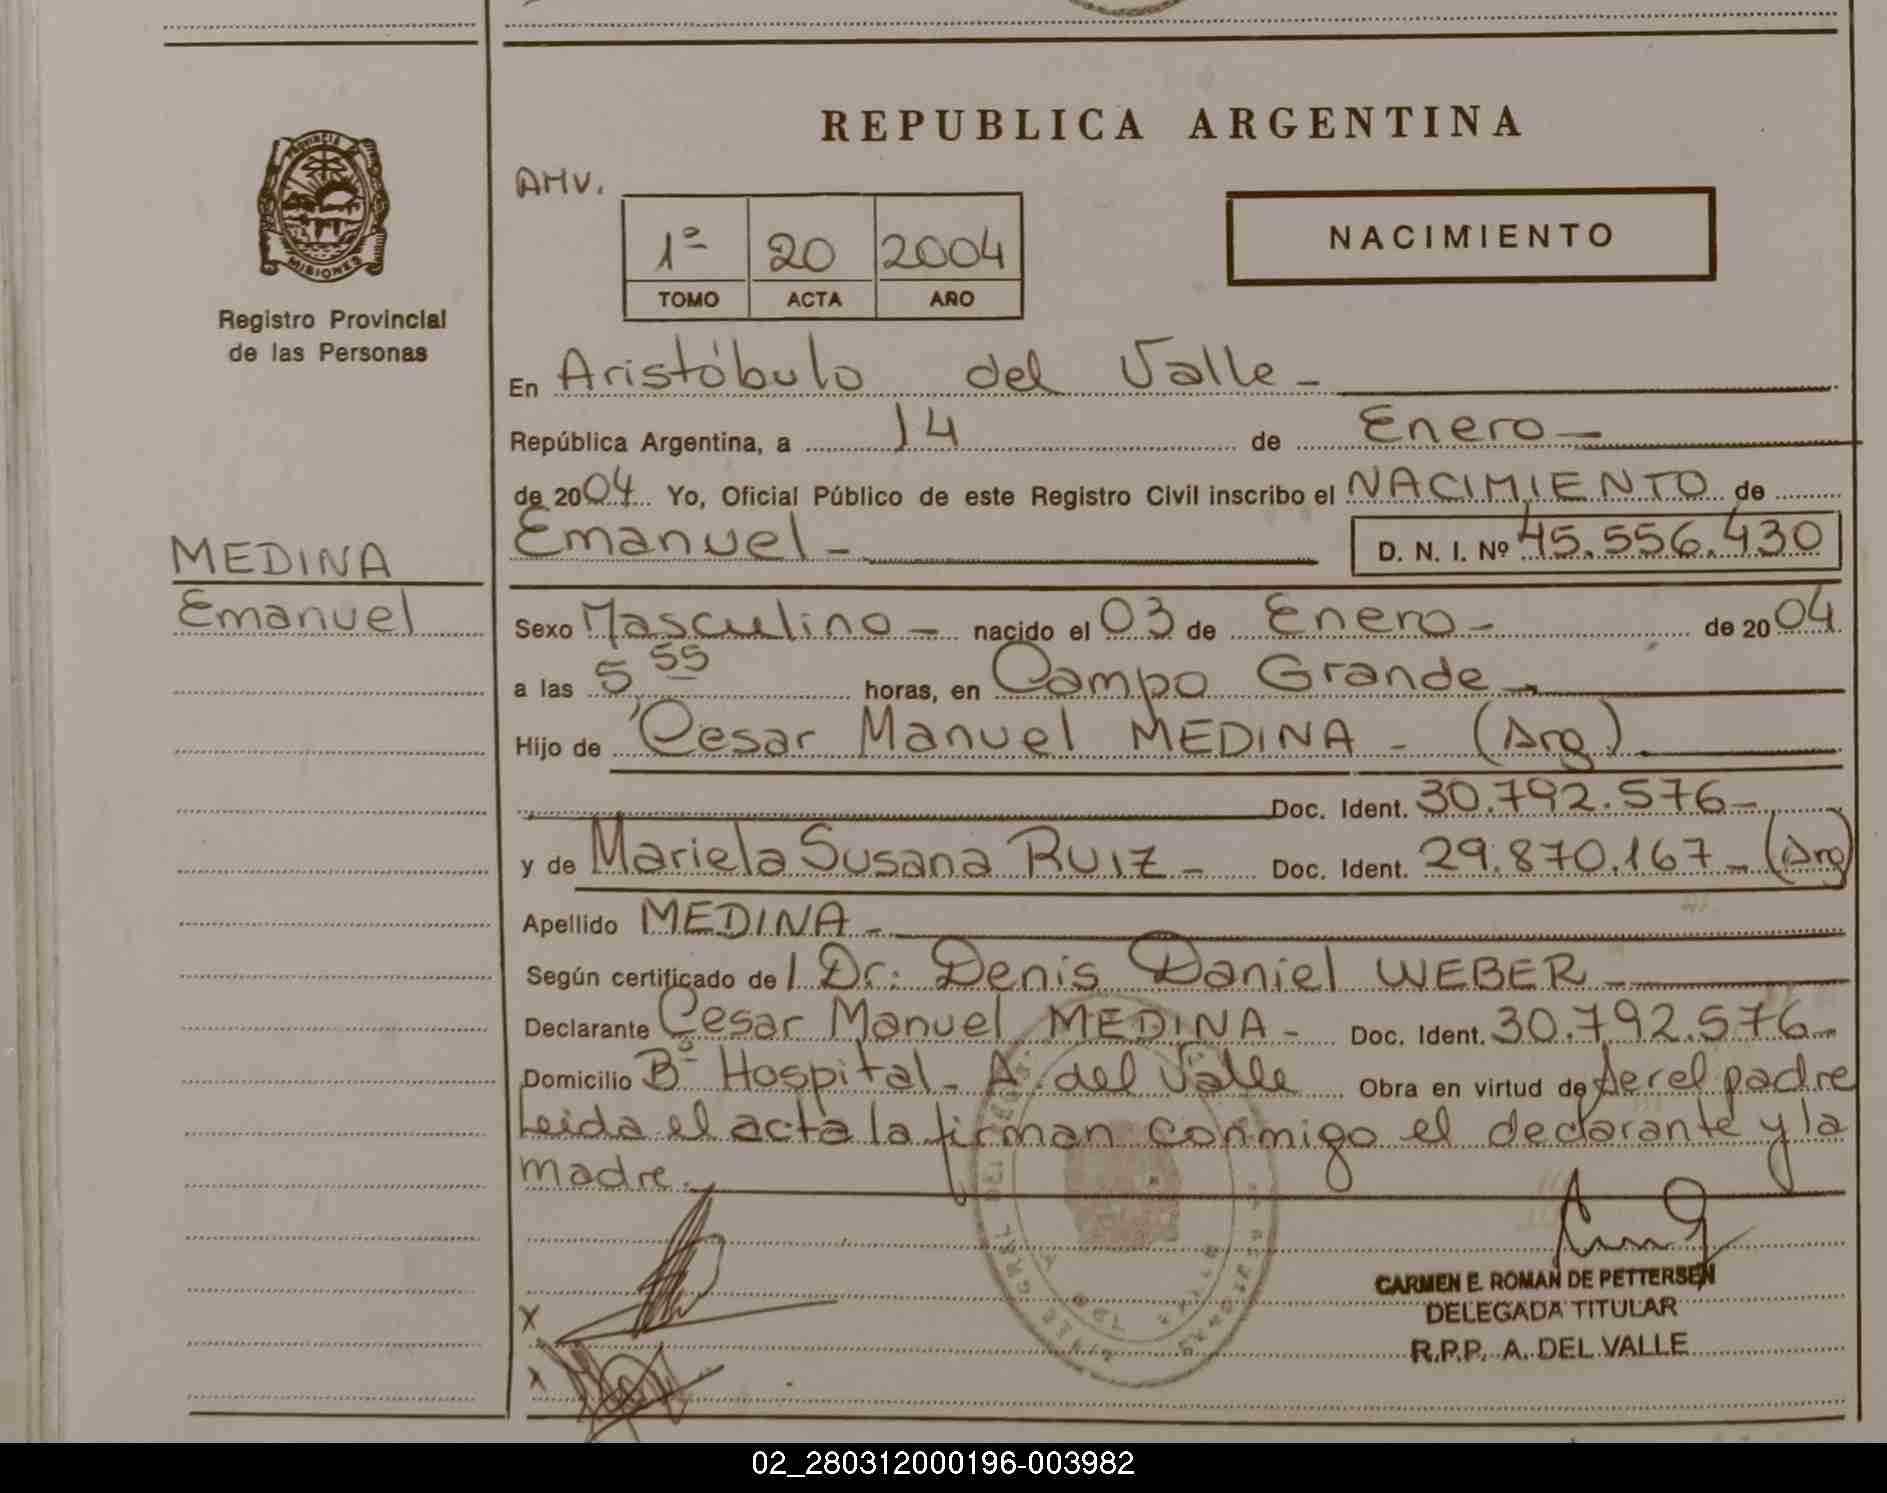 REPUBLICA ARGENTINA
AMV.
1º 20 2004
TOMO ACTA AÑO
NACIMIENTO
PROVINCIA DE
MISIONES
Registro Provincial
de las Personas
En Aristóbulo del Valle -
República Argentina, a 14 de Enero -
de 2004 Yo, Oficial Público de este Registro Civil inscribo el NACIMIENTO de
Emanuel - D. N. I. Nº 45.556.430
MEDINA
Emanuel
Sexo Masculino - nacido el 03 de Enero - de 2004
a las 5,55 horas, en Campo Grande -
Hijo de Cesar Manuel MEDINA - (Arg)
Doc. Ident. 30.792.576 -
y de Mariela Susana RUIZ - Doc. Ident. 29.870.167 - (Arg)
Apellido MEDINA -
Según certificado de l Dr. Denis Daniel WEBER -
Declarante Cesar Manuel MEDINA - Doc. Ident. 30.792.576 -
Domicilio Bº Hospital - A. del Valle Obra en virtud de ser el padre
Leida el acta la firman conmigo el declarante y la
madre.
CARMEN E. ROMAN DE PETTERSEN
DELEGADA TITULAR
R.P.P. A. DEL VALLE
X
X
02_280312000196-003982